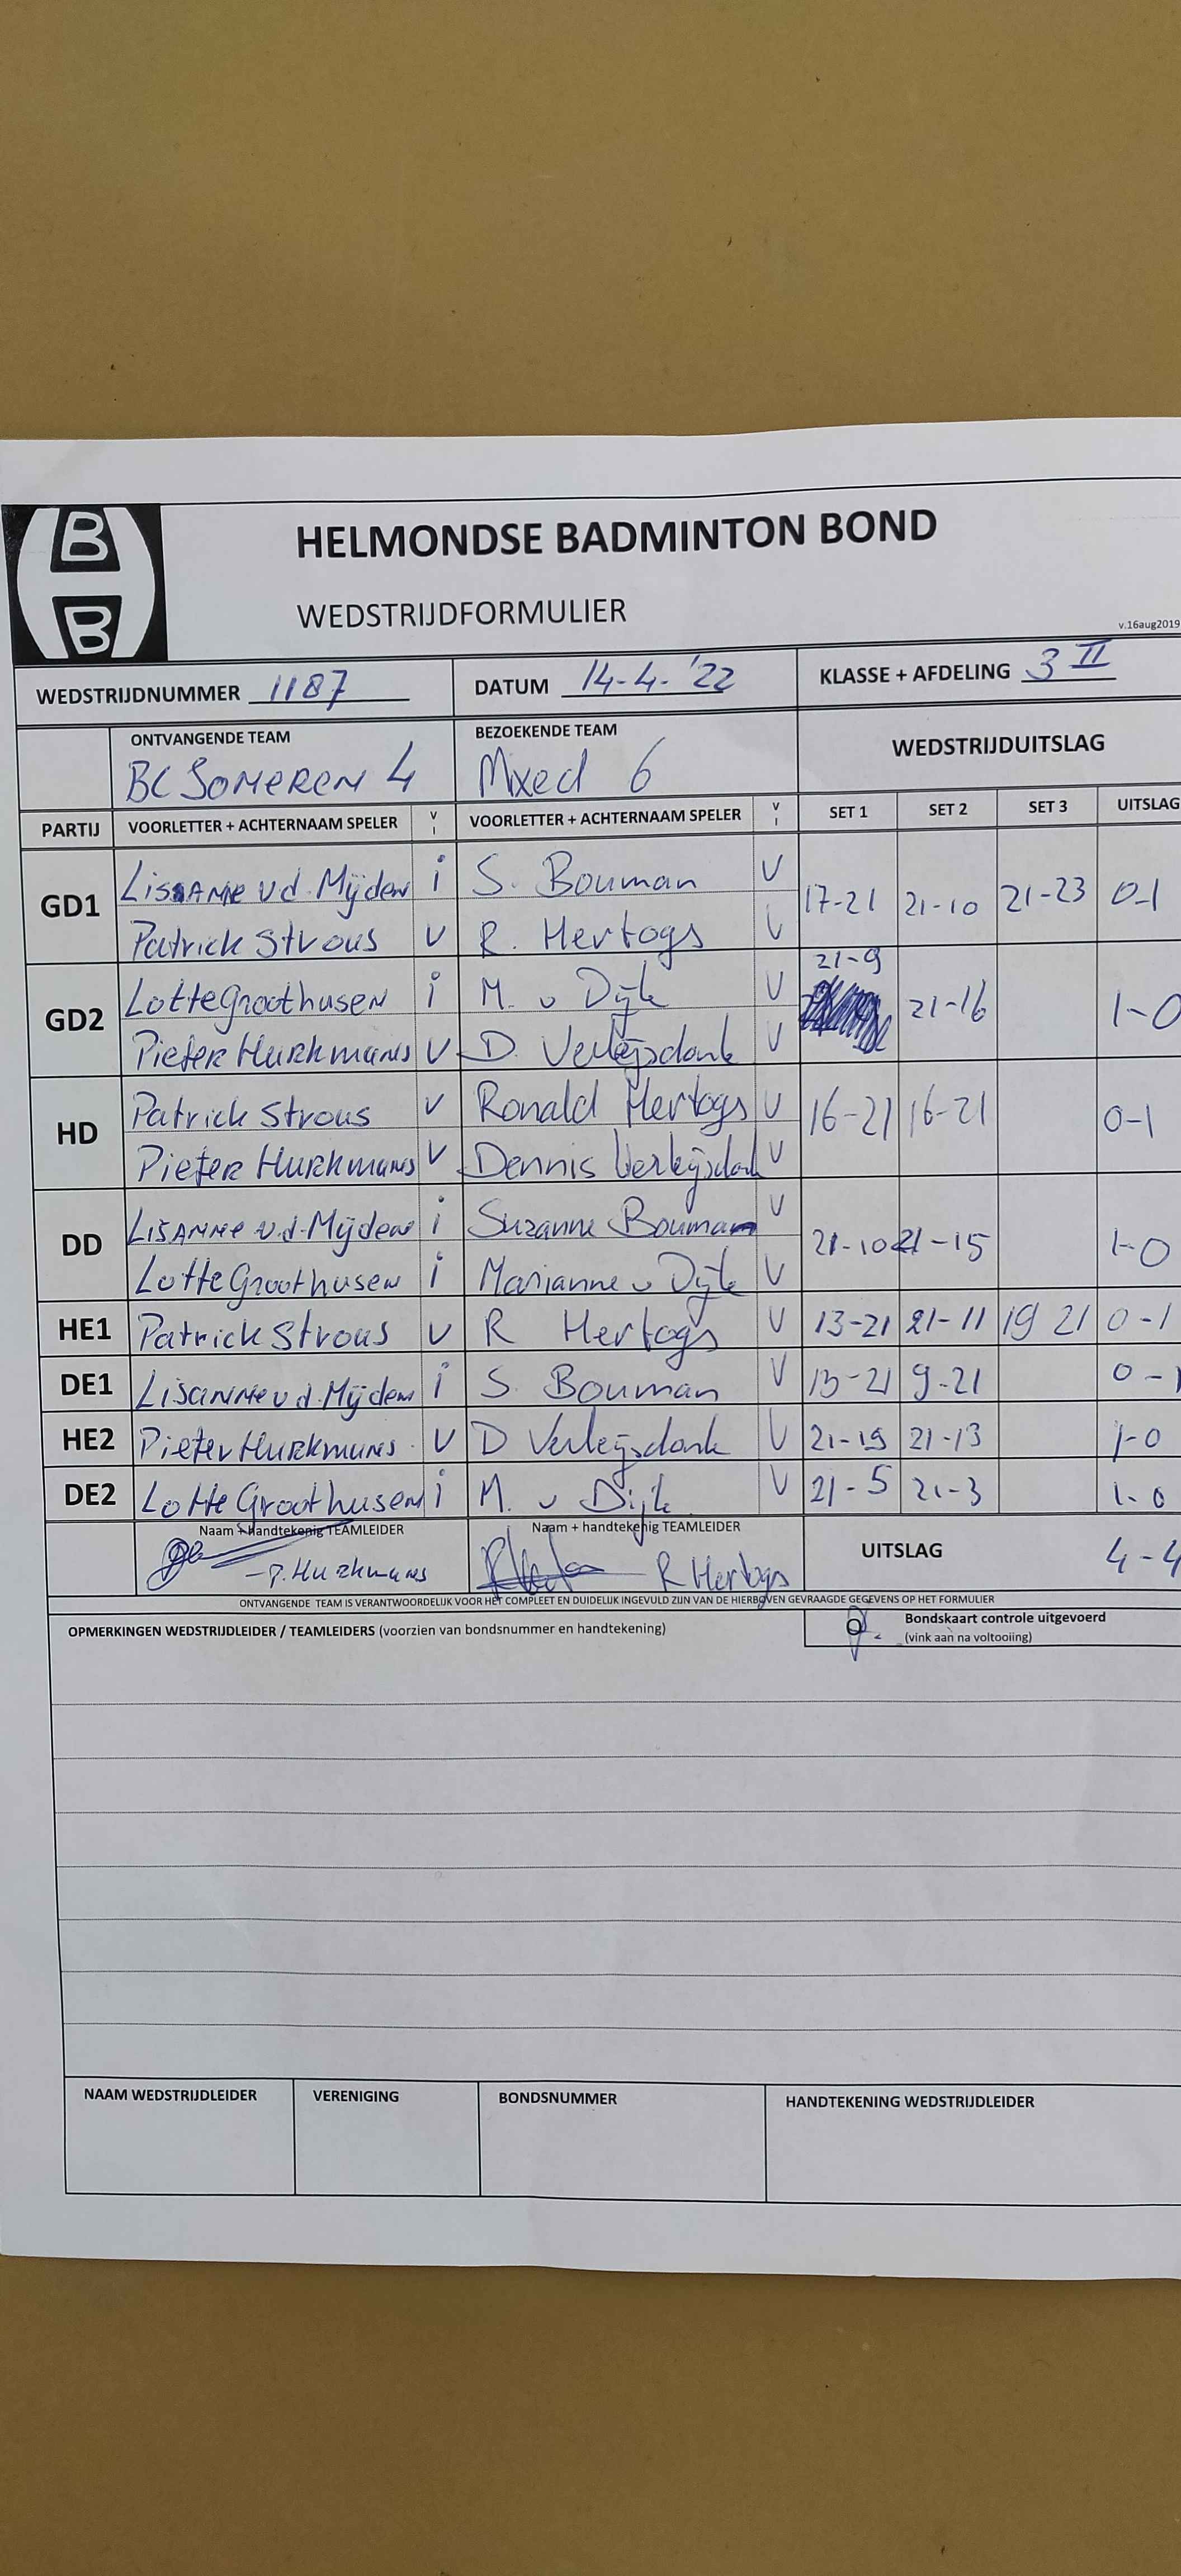 B
B
HELMONDSE BADMINTON BOND
WEDSTRIJDFORMULIER
v.16aug2019
WEDSTRIJDNUMMER 1187 DATUM 14-4-'22 KLASSE + AFDELING 3 II
ONTVANGENDE TEAM BEZOEKENDE TEAM WEDSTRIJDUITSLAG
BC SOMEREN 4 Mixed 6
PARTIJ VOORLETTER + ACHTERNAAM SPELER V I VOORLETTER + ACHTERNAAM SPELER V I SET 1 SET 2 SET 3 UITSLAG
GD1 Lisanne v d. Mijden i S. Bouman V 17-21 21-10 21-23 0-1
Patrick Strous V R. Hertogs V
GD2 Lotte Groothusen i M. v Dijk V 21-9 21-16 1-0
Pieter Hurkmans V D. Verleijsdonk V
HD Patrick Strous V Ronald Hertogs V 16-21 16-21 0-1
Pieter Hurkmans V Dennis Verleijsdonk V
DD Lisanne v.d. Mijden i Suzanne Bouman V 21-10 21-15 1-0
Lotte Groothusen i Marianne v Dijk V
HE1 Patrick Strous V R Hertogs V 13-21 21-11 19 21 0-1
DE1 Lisanne v d. Mijden i S. Bouman V 13-21 9-21 0-1
HE2 Pieter Hurkmans. V D Verleijsdonk V 21-19 21-13 1-0
DE2 Lotte Groothusen i M. v Dijk V 21-5 21-3 1-0
Naam + handtekenig TEAMLEIDER Naam + handtekenig TEAMLEIDER UITSLAG 4-4
- P. Hurkmans R Hertogs
ONTVANGENDE TEAM IS VERANTWOORDELIJK VOOR HET COMPLEET EN DUIDELIJK INGEVULD ZIJN VAN DE HIERBOVEN GEVRAAGDE GEGEVENS OP HET FORMULIER
OPMERKINGEN WEDSTRIJDLEIDER / TEAMLEIDERS (voorzien van bondsnummer en handtekening) Bondskaart controle uitgevoerd
(vink aan na voltooiing)
NAAM WEDSTRIJDLEIDER VERENIGING BONDSNUMMER HANDTEKENING WEDSTRIJDLEIDER